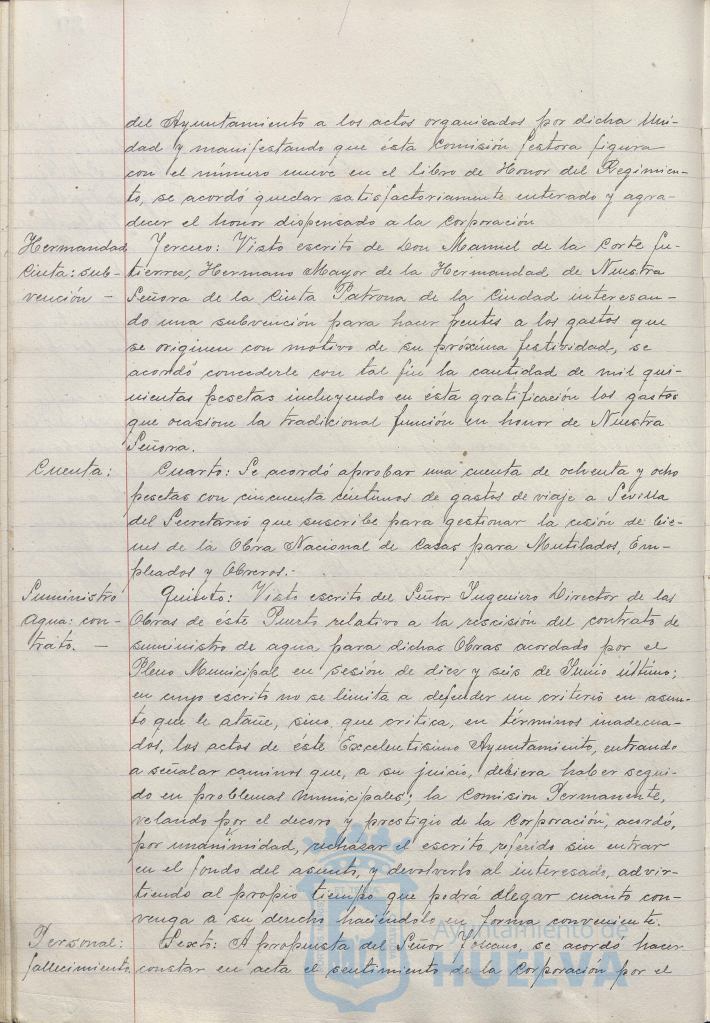 del Ayuntamiento a los actos organizados por dicha Uni-
dad y manifestando que ésta Comisión Gestora figura
con el número nueve en el libro de Honor del Regimien-
to, se acordó quedar satisfactoriamente enterado y agra-
decer el honor dispensado a la Corporación
Hermandad Cinta: sub-vención –
Tercero: Visto escrito de Don Manuel de la Corte Gu-
tierrez, Hermano Mayor de la Hermandad de Nuestra
Señora de la Cinta Patrona de la Ciudad interesan-
do una subvención para hacer frentes a los gastos que
se originen con motivo de su próxima festividad, se
acordó concederle con tal fin la cantidad de mil qui-
nientas pesetas incluyendo en ésta gratificación los gastos
que ocasione la tradicional función en honor de Nuestra
Señora.
Cuenta:
Cuarto: Se acordó aprobar una cuenta de ochenta y ocho
pesetas con cincuenta céntimos de gastos de viaje a Sevilla
del Secretario que suscribe para gestionar la cesión de bie-
nes de la Obra Nacional de Casas para Mutilados, Em-
pleados y Obreros.-
Suministro agua: con-trato. –
Quinto: Visto escrito del Señor Ingeniero Director de las
Obras de éste Puerto relativo a la rescisión del contrato de
suministro de agua para dichas Obras acordado por el
Pleno Municipal en sesión de diez y seis de Junio último;
en cuyo escrito no se limita a defender un criterio en asun-
to que le atañe, sino, que critica, en términos inadecua-
dos, los actos de éste Excelentisimo Ayuntamiento, entrando
a señalar caminos que, a su juicio, debiera haber segui-
do en problemas municipales; la Comision Permanente,
velando por el decoro y prestigio de la Corporación, acordó,
por unanimidad, rechazar el escrito referido sin entrar
en el fondo del asunto, y devolverlo al interesado, advir-
tiendo al propio tiempo que podrá alegar cuanto con-
venga a su derecho haciéndolo en forma conveniente.
Personal: fallecimiento
Sexto: A propuesta del Señor, se acordó hacer
constar en acta el sentimiento de la Corporación por el
Ayuntamiento de
HUELVA